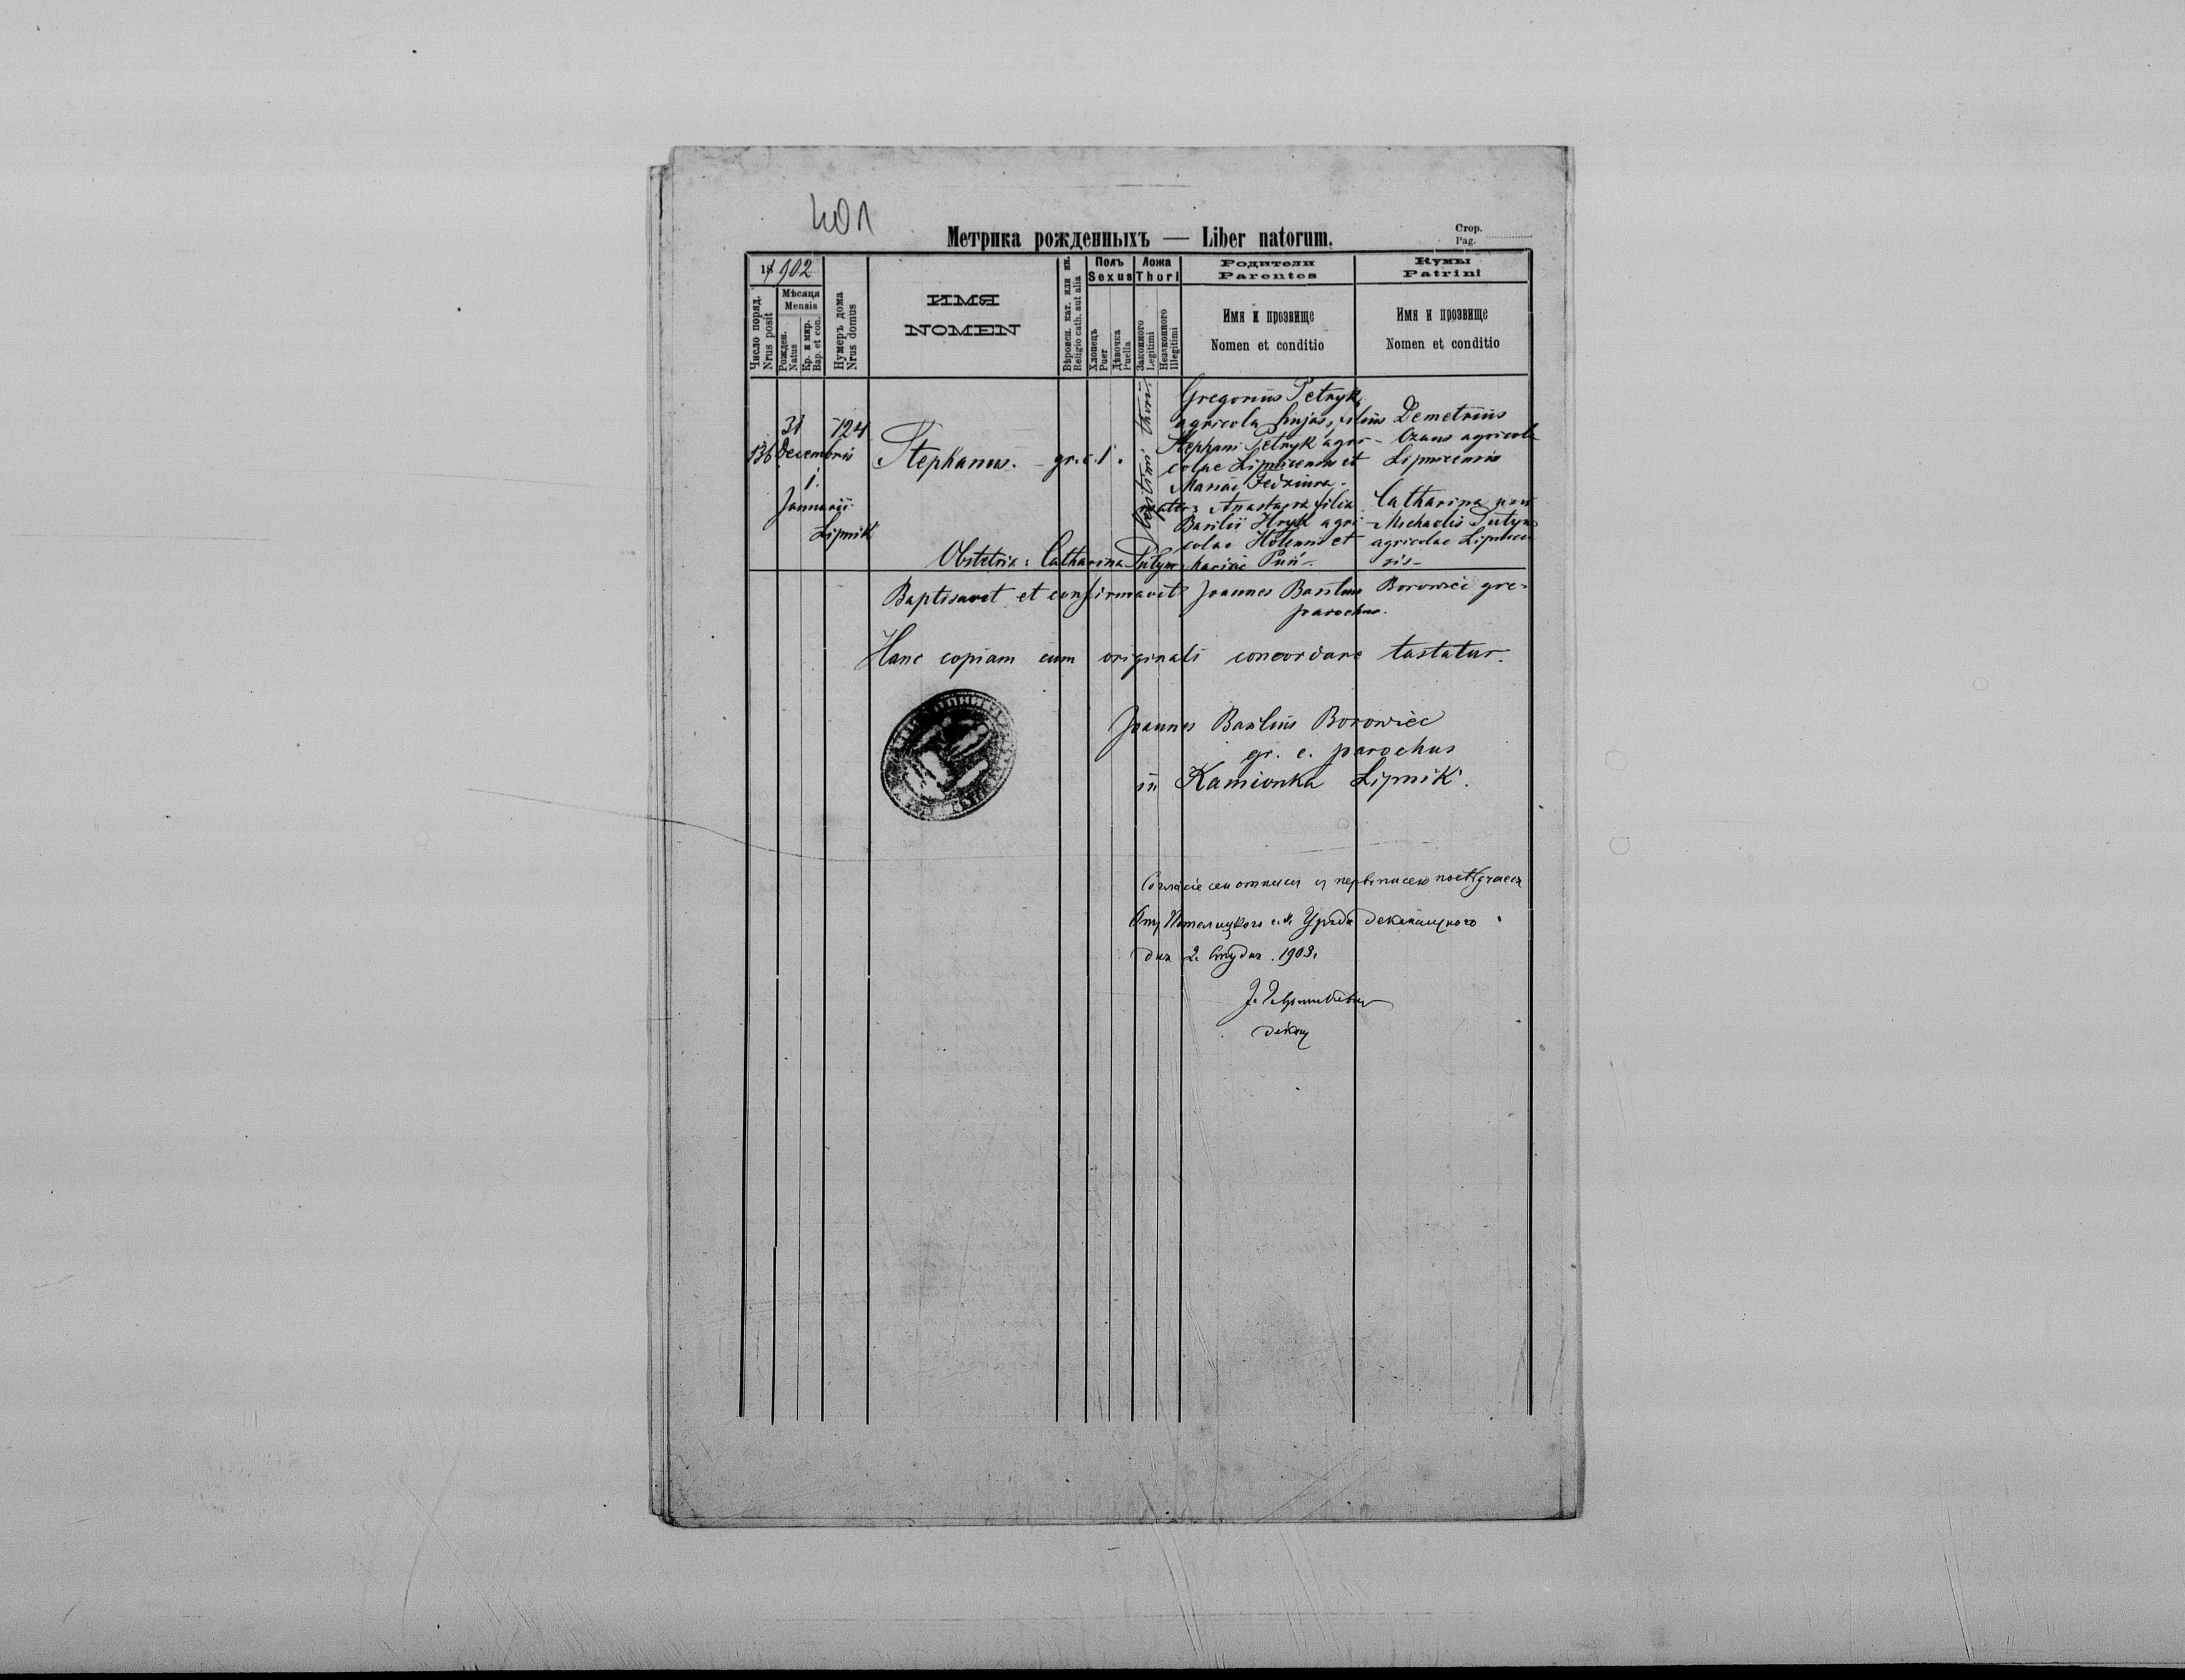 401
Метрика рожденныхъ — Liber natorum.
Стор.
Pag.
18 1902
Число поряд.
Nrus posit
Мѣсяця
Mensis
Рожден.
Natus
Кр. и мир.
Bap. et con.
Нумеръ дома
Nrus domus
ИМЯ
NOMEN
Вѣроисп. кат. или ин.
Religio cath. aut alia
Полъ
Sexus
Хлопецъ
Puer
Дѣвочка
Puella
Ложа
Thori
Законного
Legitimi
Незаконного
Illegitimi
Родители
Parentes
Имя и прозвище
Nomen et conditio
Кумы
Patrini
Имя и прозвище
Nomen et conditio
136
31
Decembris
1.
Januarii
124
Lipnik
Stephanus.
gr. c.
1.
Legitimi thori
Gregorius Petryk,
agricola hujas, filius
Stephani Petryk agri-
colae Lipnicensis et
Mariae Fedziura.
mater: Anastasia filia
Basilii Hryk agri-
colae Holensis et
Mariae
Demetrius
agricola
Lipnicensis
Catharina uxor
Michaelis
agricolae Lipnicen
sis
Obstetrix: Catharina
Baptisavit et confirmavit Joannes Basilius Borowiec gr. c.
parochus.
Hanc copiam cum originali concordare testatur.
Joannes Basilius Borowiec
gr. c. parochus
in Kamionka Lipnik.
деканального
дня 2 Студня. 1903.
декан